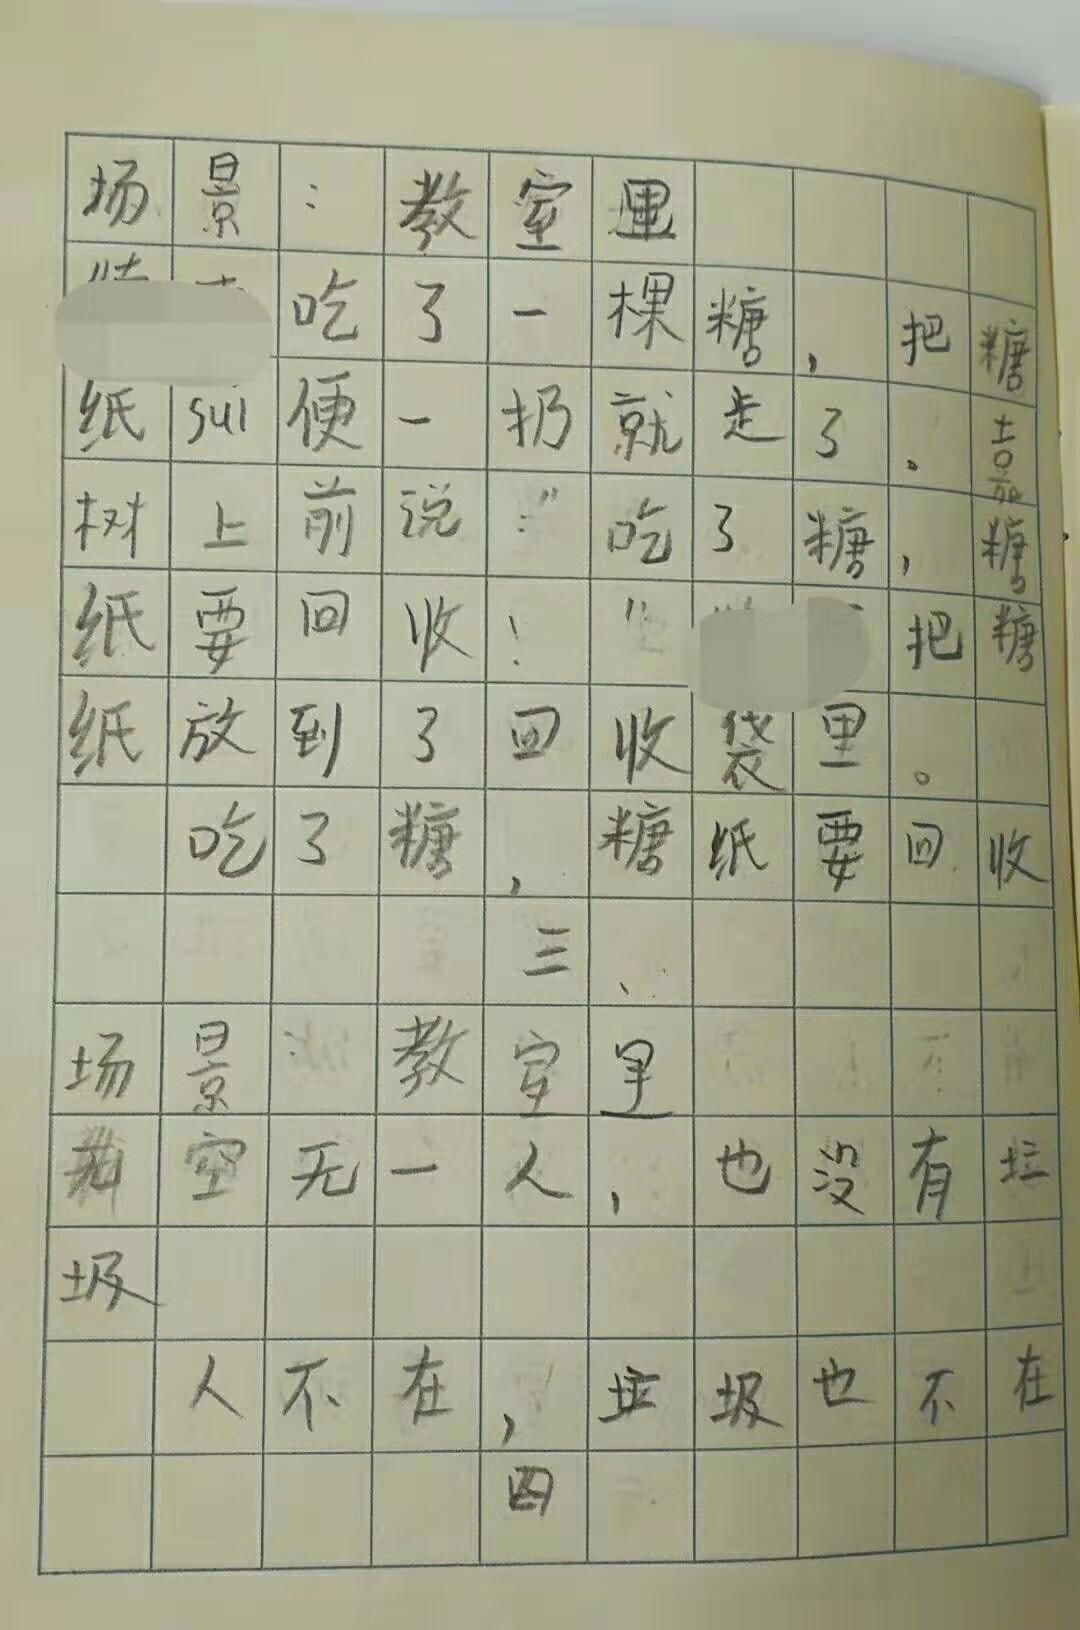 场景：教室里
吃了一棵糖，把糖
纸sui便一扔就走了。嘉
树上前说：“吃了糖，糖
纸要回收！”把糖
纸放到了回收袋里。
吃了糖，糖纸要回收
三、
场景：教室里
空无一人，也没有垃
圾
人不在，垃圾也不在
四